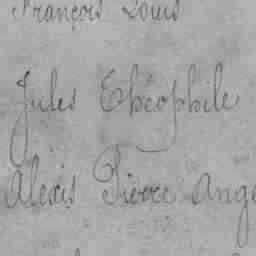 François Louis
Jules Théophile
Alexis Pierre Ange